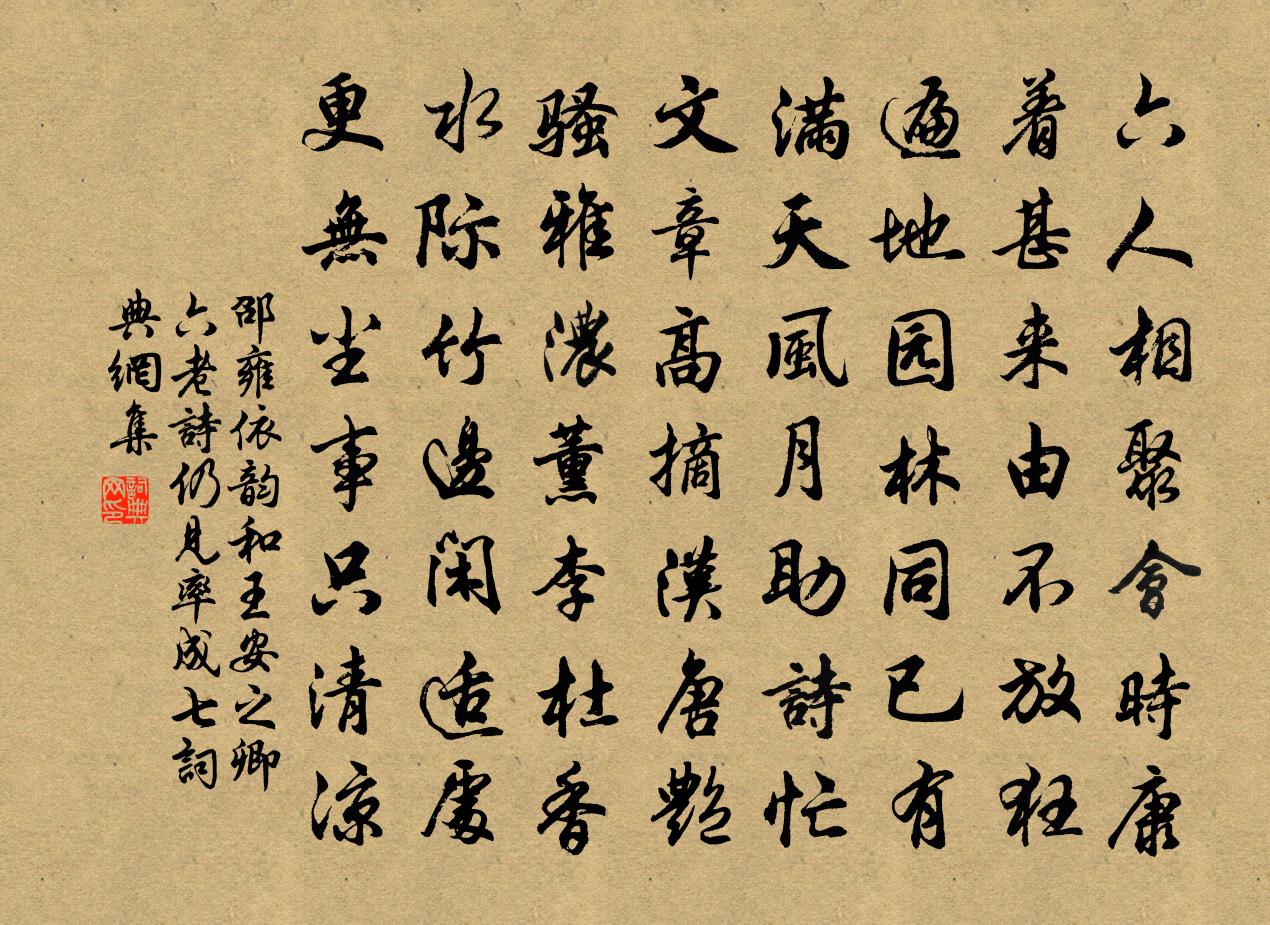 六人相聚會時康
着甚来由不放狂
遍地园林同已有
满天風月助詩忙
文章高摘漢唐艷
騷雅濃薰李杜香
水际竹邊闲适處
更無尘事只清凉
邵雍依韵和王安之卿
六老詩仍見率成七詞
典網集
詞典网印